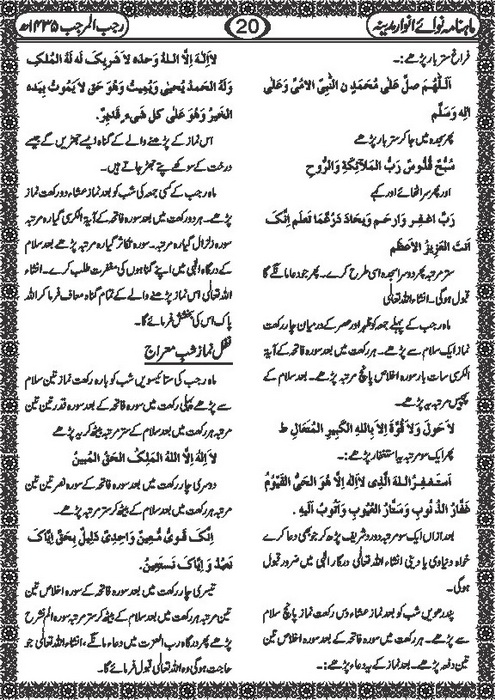 ماہنامہ نوائے انوار مدینہ
20
رجب المرجب ۱۴۳۵ھ
فراغ ستر بار پڑھے:۔
اَللّٰهُمَّ صَلِّ عَلٰی مُحَمَّدِ نِ النَّبِیِّ الاُمِّیِّ وَعَلٰی
اٰلِهٖ وَسَلَّم
پھر سجدہ میں جا کر ستر بار پڑھے
سُبُّحٌ قُدُّوسٌ رَبُّ المَلآئِکَةِ وَالرُّوحِ
اور پھر سر اٹھائے اور کہے
رَبِّ اغفِر وَارحَم وَتَجَاوَز عَمَّا تَعلَم اِنَّکَ
اَنتَ العَزِیزُ الاَعظَم
ستر مرتبہ پھر دوسرا سجدہ اسی طرح کرے۔ پھر جو دعا مانگے گا
قبول ہوگی۔ انشاء اللہ تعالٰی
ماہ رجب کے پہلے جمعہ کو ظہر اور عصر کے درمیان چار رکعت
نماز ایک سلام سے پڑھے۔ ہر رکعت میں بعد سورہ فاتحہ کے آیۃ
الکرسی سات بار سورہ اخلاص پانچ مرتبہ پڑھے۔ بعد سلام
کے پچیس مرتبہ یہ پڑھے۔
لاَ حَولَ وَلاَ قُوَّةَ اِلاَ بِاللّٰهِ الکَبِیرِ المُتَعَالِ ط
پھر ایک سو مرتبہ یہ استغفار پڑھے:۔
اَستَغفِرُ اللهَ الَّذِی لاَاِلٰهَ اِلَّا هُوَ الحَیُّ القَیُّومُ
غَفَّارُ الذُّنُوبِ وَسَتَّارُ العُیُوبِ وَاَتُوبُ اِلَیهِ ۔
بعد ازاں ایک سو مرتبہ درود شریف پڑھ کر جو بھی دعا کرے
خواہ دنیاوی یا دینی انشاء اللہ تعالٰی درگاہ الٰہی میں ضرور قبول
ہوگی۔
پندرھویں شب کو بعد نماز عشاء دس رکعت نماز پانچ سلام
سے پڑھے۔ ہر رکعت میں بعد سورہ فاتحہ کے سورہ اخلاص تین
تین دفعہ پڑھے۔ بعد نماز کے یہ دعا پڑھے:۔
لاَاِلٰهَ اِلاَّ اللهُ وَحدَهٗ لاَ شَرِیکَ لَهٗ لَهُ المُلکُ
وَلَهُ الحَمدُ یُحیٖ وَیُمِیتُ وَهُوَ حَیٌّ لاَ یَمُوتُ بِیَدِهِ
الخَیرُ وَهُوَ عَلٰی کُلِّ شَیءٍ قَدِیرٌ۔
اس نماز کے پڑھنے والے کے گناہ ایسے جھڑیں گے جیسے
درخت کے سوکھے پتے جھڑ جاتے ہیں۔
ماہ رجب کے کسی جمعہ کی شب کو بعد نماز عشاء دو رکعت نماز
پڑھے۔ ہر دو رکعت میں بعد سورہ فاتحہ کے آیۃ الکرسی گیارہ مرتبہ
سورہ زلزال گیارہ مرتبہ۔ سورہ تکاثر گیارہ مرتبہ پڑھے بعد سلام
کے درگاہ الٰہی میں اپنے گناہوں کی مغفرت طلب کرے۔ انشاء
اللہ تعالٰی اس نماز پڑھنے والے کے تمام گناہ معاف فرما کر اللہ
پاک اس کی بخشش فرمائے گا۔
نفل نماز شبِ معراج
ماہ رجب کی ستائیسویں شب کو بارہ رکعت نماز تین سلام
سے پڑھے پہلی رکعت میں سورہ فاتحہ کے بعد سورہ قدر تین تین
مرتبہ ہر رکعت میں بعد سلام کے ستر مرتبہ بیٹھ کر یہ پڑھے
لاَ اِلٰهَ اِلاَّ اللهُ المَلِکُ الحَقُّ المُبِینُ
دوسری چار رکعت میں بعد سورہ فاتحہ کے سورہ نصر تین تین
مرتبہ ہر رکعت میں بعد سلام کے بیٹھ کر ستر مرتبہ پڑھے
اِنَّکَ قَوِیٌّ مُعِینٌ وَاحِدِیٌّ دَلِیلٌ بِحَقِّ اِیَّاکَ
نَعبُدُ وَ اِیَّاکَ نَستَعِینُ۔
تیسری چار رکعت میں بعد سورہ فاتحہ کے سورہ اخلاص تین
تین مرتبہ ہر رکعت میں بعد سلام کے بیٹھ کر ستر مرتبہ سورہ الم نشرح
پڑھے پھر درگاہ رب العزت میں دعاء مانگے، انشاء اللہ تعالٰی جو
حاجت ہوگی وہ اللہ تعالٰی قبول فرمائے گا۔